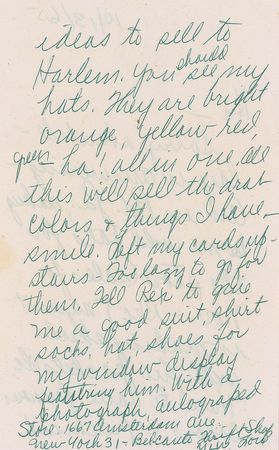 ideas to sell to
Harlem. You should see my
hats. They are bright
orange, yellow, red,
green ha! all in one, all
this will sell the drab
colors & things I have—
smile. Left my cards up-
stairs. Too lazy to go for
them. Tell Rep to give
me a good suit, shirt
socks, hat, shoes for
my window display
featuring him. With a
photograph, autograped
Store: 1667 Amsterdam Ave.
New York 31 - Belcante Thrift Shop
New York